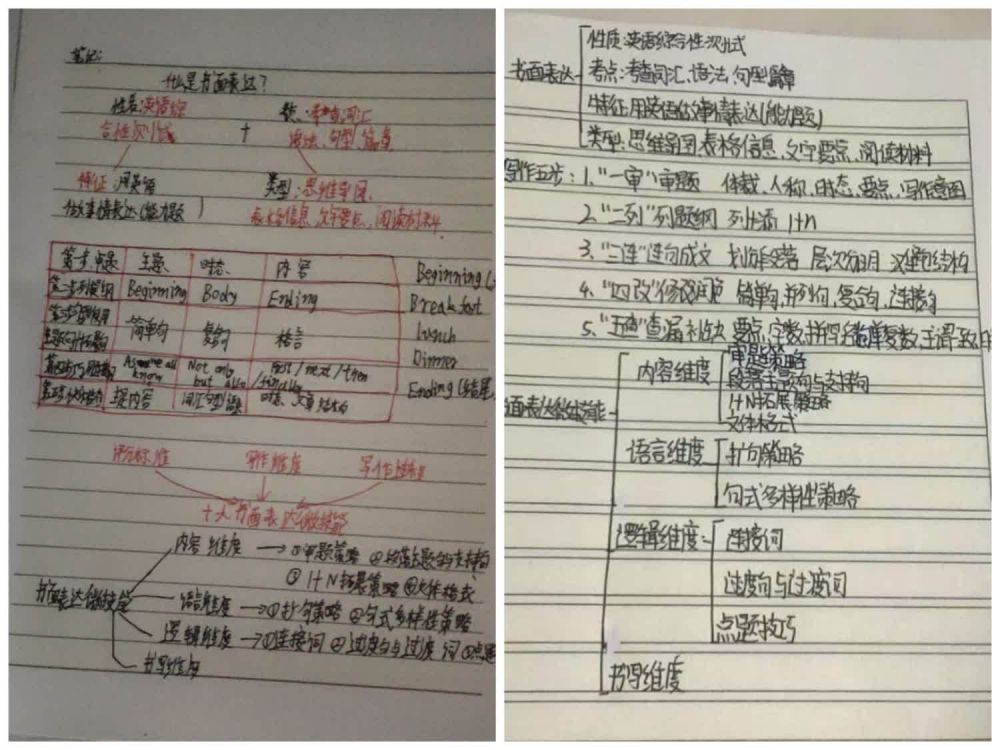 笔记:
什么是书面表达?
性质:英语综
合性测试
+
考查词汇
语法,句型,篇章
特征:用英语
做事情表达(能力题)
类型:思维导图,
表格信息,文字要点,阅读材料
第一步,审题 主题 时态 内容
Beginning Body Ending
简单句 复合句 格言
As we all know Not only but also First/next/then/finally
词汇句型
Beginning
Breakfast
Lunch
Dinner
Ending(结尾
评分标准 写作维度
十大书面表达微技能
书面表达微技能
内容维度→①审题策略 ②段落主题句与支持句
③1+N拓展策略 ④文体格式
语言维度→①扩句策略 ②句式多样性策略
逻辑维度→①连接词 ②过渡句与过渡词 ③点题
书写维度
书面表达
性质:英语综合性测试
考点:考查词汇、语法、句型篇章
特征:用英语做事情表达(能力题)
类型:思维导图、表格信息、文字要点、阅读材料
写作五步:1、"一审"审题 体裁、人称、时态、要点、写作意图
2、"二列"列题纲 列出添 1+n
3、"三连"连句成文 划分段落 层次分明
4、"四改" 简单句,并列句,复合句,连接句
5、"五查"查漏补缺 要点、字数、拼写、单复数、主谓一致
面表达微技能
内容维度
审题策略
段落主题句与支持句
1+N拓展策略
文体格式
语言维度
扩句策略
句式多样性策略
逻辑维度
连接词
过渡句与过渡词
点题技巧
书写维度